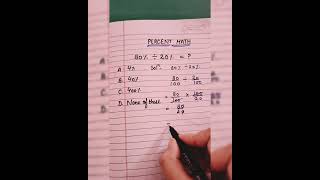 PERCENT MATH
80% ÷ 20% = ?
A. 4% Solⁿ. 80% ÷ 20%
B. 40% 80/100 ÷ 20/100
C. 400%
D. None of these = 80/100 × 100/20
= 80/20
=